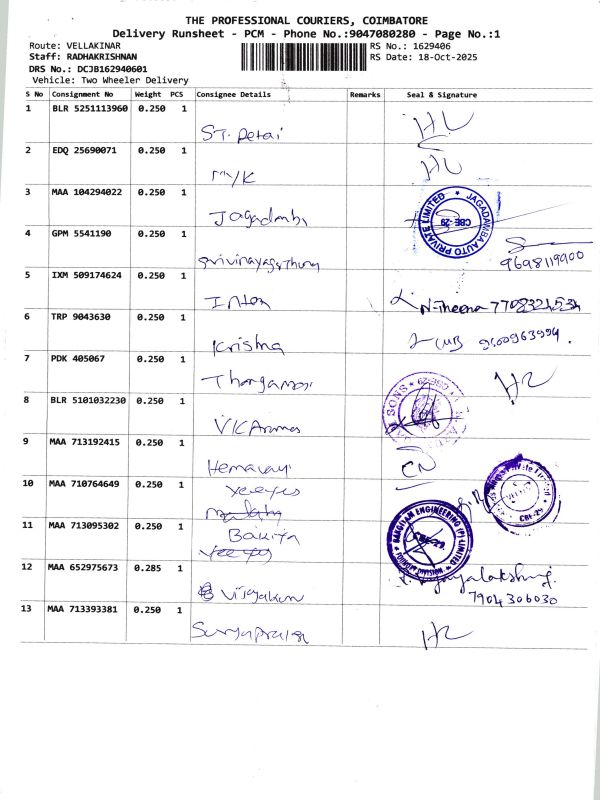 THE PROFESSIONAL COURIERS, COIMBATORE
Delivery Runsheet - PCM - Phone No.:9047080280 - Page No.:1
Route: VELLAKINAR RS No.: 1629406
Staff: RADHAKRISHNAN RS Date: 18-Oct-2025
DRS No.: DCJB162940601
Vehicle: Two Wheeler Delivery
S No Consignment No Weight PCS Consignee Details Remarks Seal & Signature
1 BLR 5251113960 0.250 1
ST. Petai
2 EDQ 25690071 0.250 1
M/K
3 MAA 104294022 0.250 1
Jagadamba JAGADAMBA AUTO PRIVATE LIMITED CBE-29
4 GPM 5541190 0.250 1
Srivinayaga 9698119900
5 IXM 509174624 0.250 1
Inten N-Theena 7708321534
6 TRP 9043630 0.250 1
Krishna 9600963994.
7 PDK 405067 0.250 1
Thangamani
8 BLR 5101032230 0.250 1
SONS
9 MAA 713192415 0.250 1
10 MAA 710764649 0.250 1
yeeyes Private Limited CBE-29
11 MAA 713095302 0.250 1
Bakiya BAKGIYAM ENGINEERING (P) LIMITED CBE-29. FOUNDRY DIVISION
12 MAA 652975673 0.285 1
Vijayalakshmi
7904306030
13 MAA 713393381 0.250 1